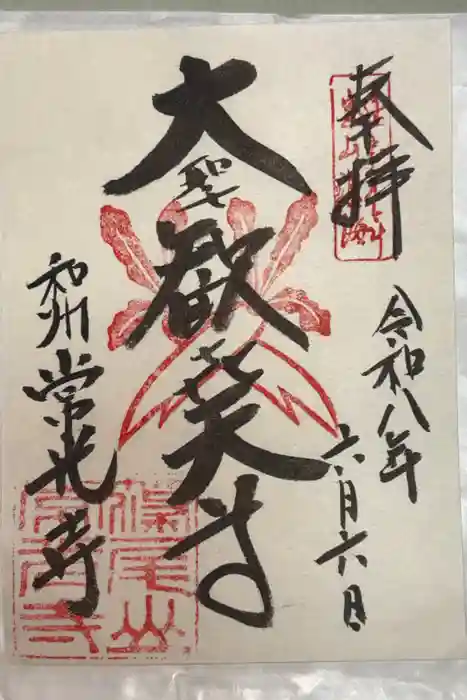 奉拝
令和八年
六月六日
大聖歓喜天尊
和州 常光寺
常光寺